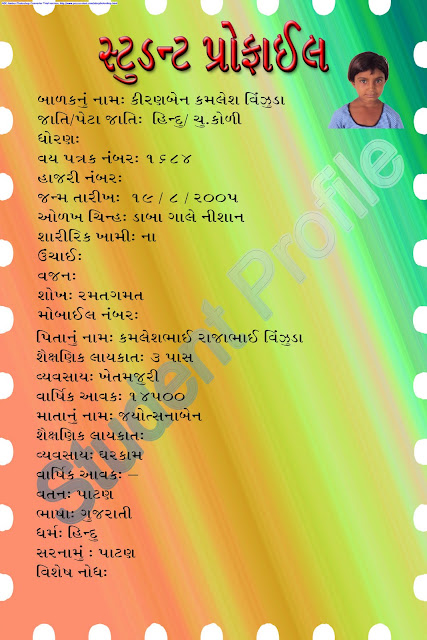 સ્ટુડન્ટ પ્રોફાઈલ
બાળકનું નામઃ કીરણબેન કમલેશ વિંઝુડા
જાતિ/પેટા જાતિઃ હિન્દુ/ ચુ.કોળી
ધોરણઃ
વય પત્રક નંબરઃ ૧૬૮૪
હાજરી નંબરઃ
જન્મ તારીખઃ ૧૯ / ૮ / ૨૦૦૫
ઓળખ ચિન્હઃ ડાબા ગાલે નીશાન
શારીરિક ખામીઃ ના
ઉંચાઈઃ
વજનઃ
શોખઃ રમતગમત
મોબાઈલ નંબરઃ
પિતાનું નામઃ કમલેશભાઈ રાજાભાઈ વિંઝુડા
શૈક્ષણિક લાયકાતઃ ૩ પાસ
વ્યવસાયઃ ખેતમજુરી
વાર્ષિક આવકઃ ૧૪૫૦૦
માતાનું નામઃ જયોત્સનાબેન
શૈક્ષણિક લાયકાતઃ
વ્યવસાયઃ ઘરકામ
વાર્ષિક આવકઃ –
વતનઃ પાટણ
ભાષાઃ ગુજરાતી
ધર્મઃ હિન્દુ
સરનામું : પાટણ
વિશેષ નોધઃ
Student Profile